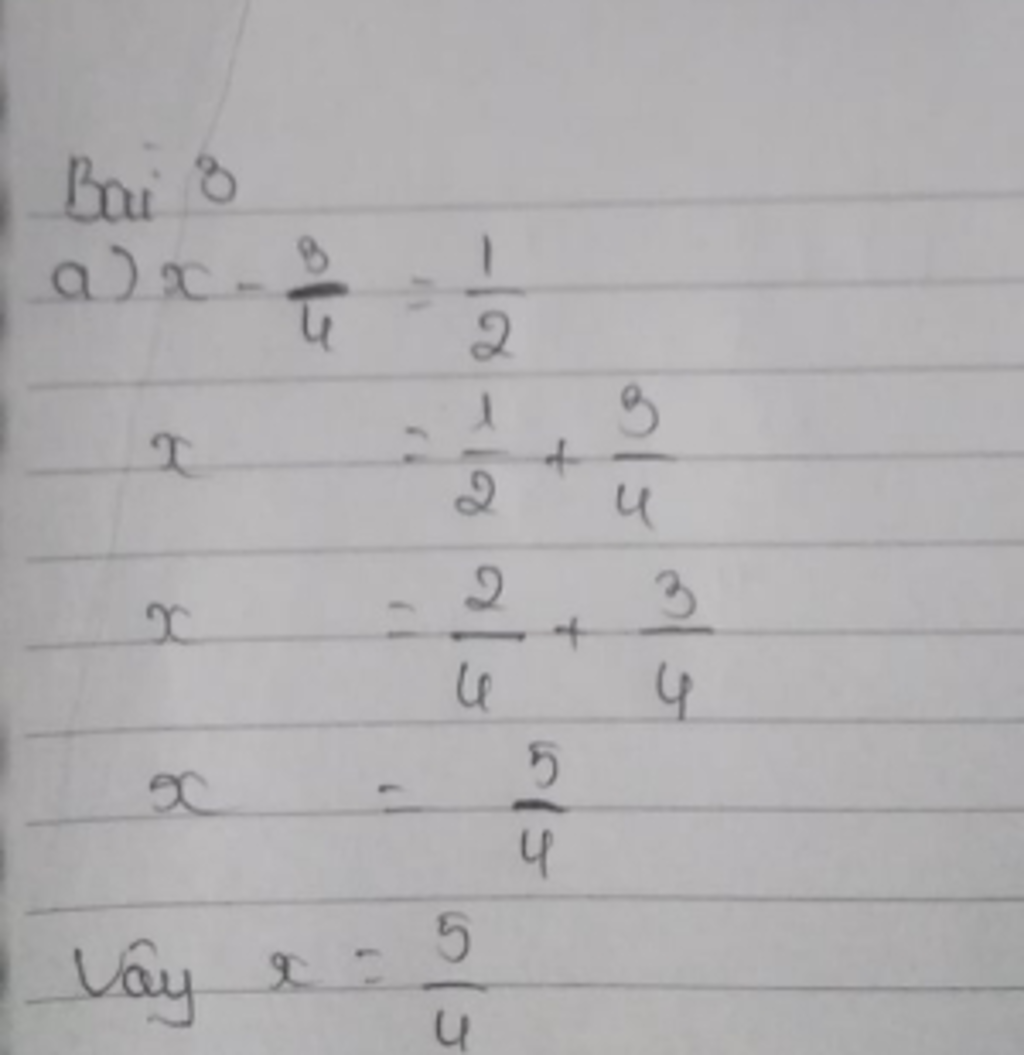 Bài 3
a) x - 3/4 = 1/2
x = 1/2 + 3/4
x = 2/4 + 3/4
x = 5/4
Vậy x = 5/4